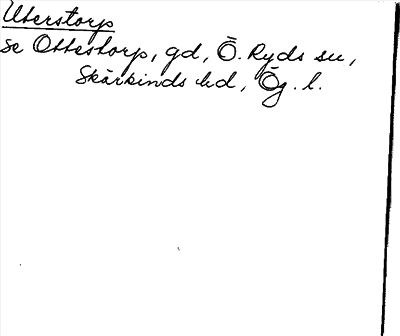 Uterstorp
se Ottestorp, gd, Ö. Ryds sn,
Skärkinds hd, Ög. l.